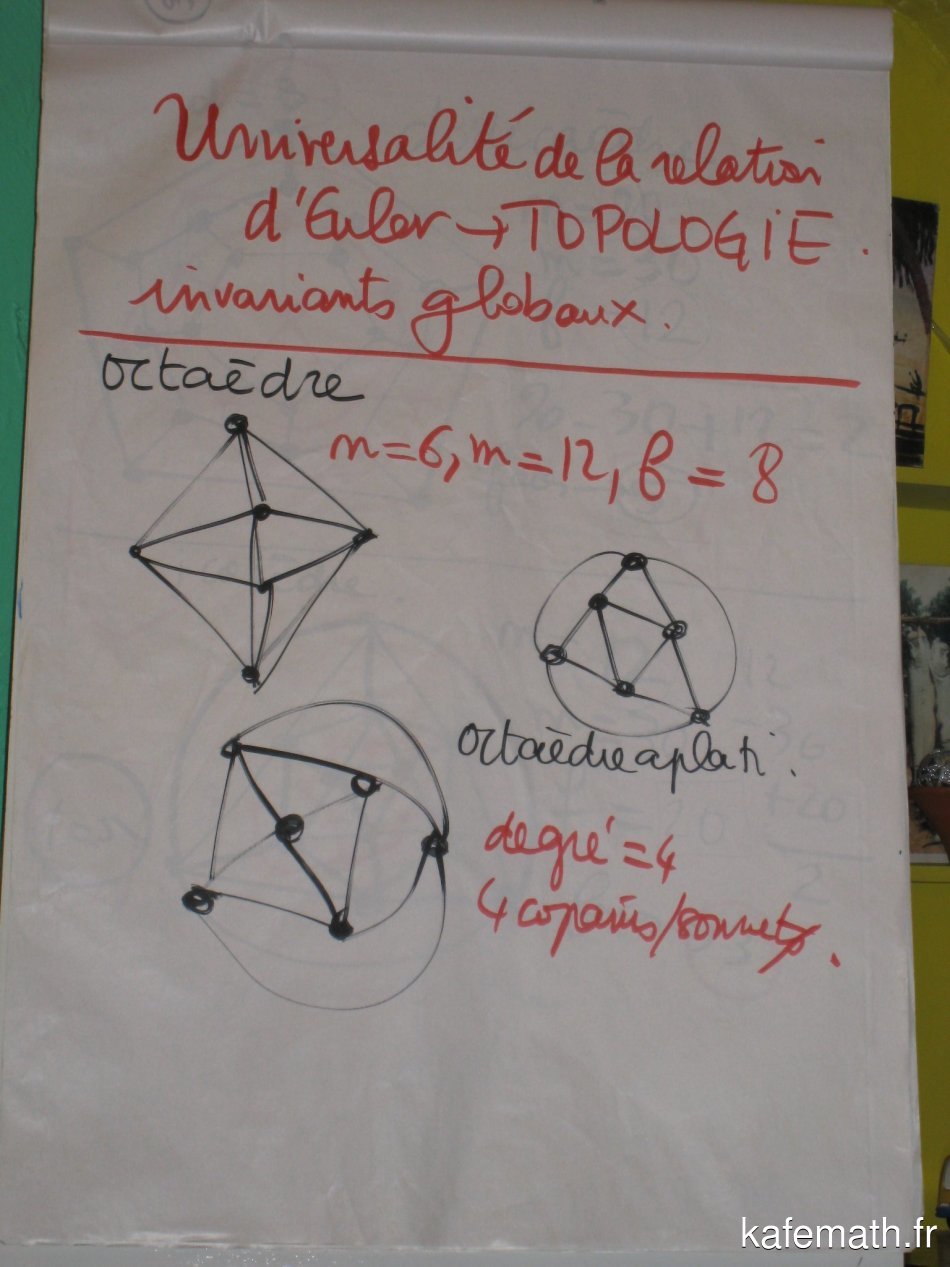 Universalité de la relation
d'Euler → TOPOLOGIE.
invariants globaux.
octaèdre
n=6, m=12, f = 8
octaèdre aplati.
degré=4
4 copains/sommets.
kafemath.fr